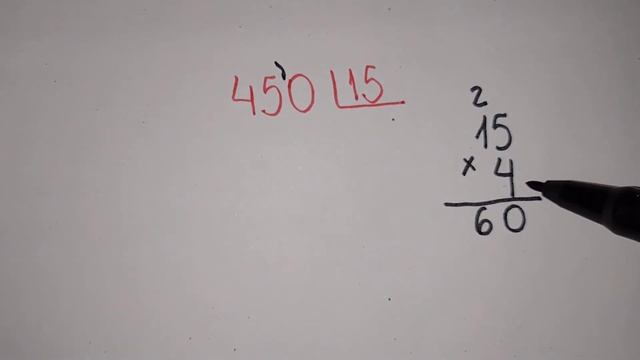 450 15
2
15
× 4
60